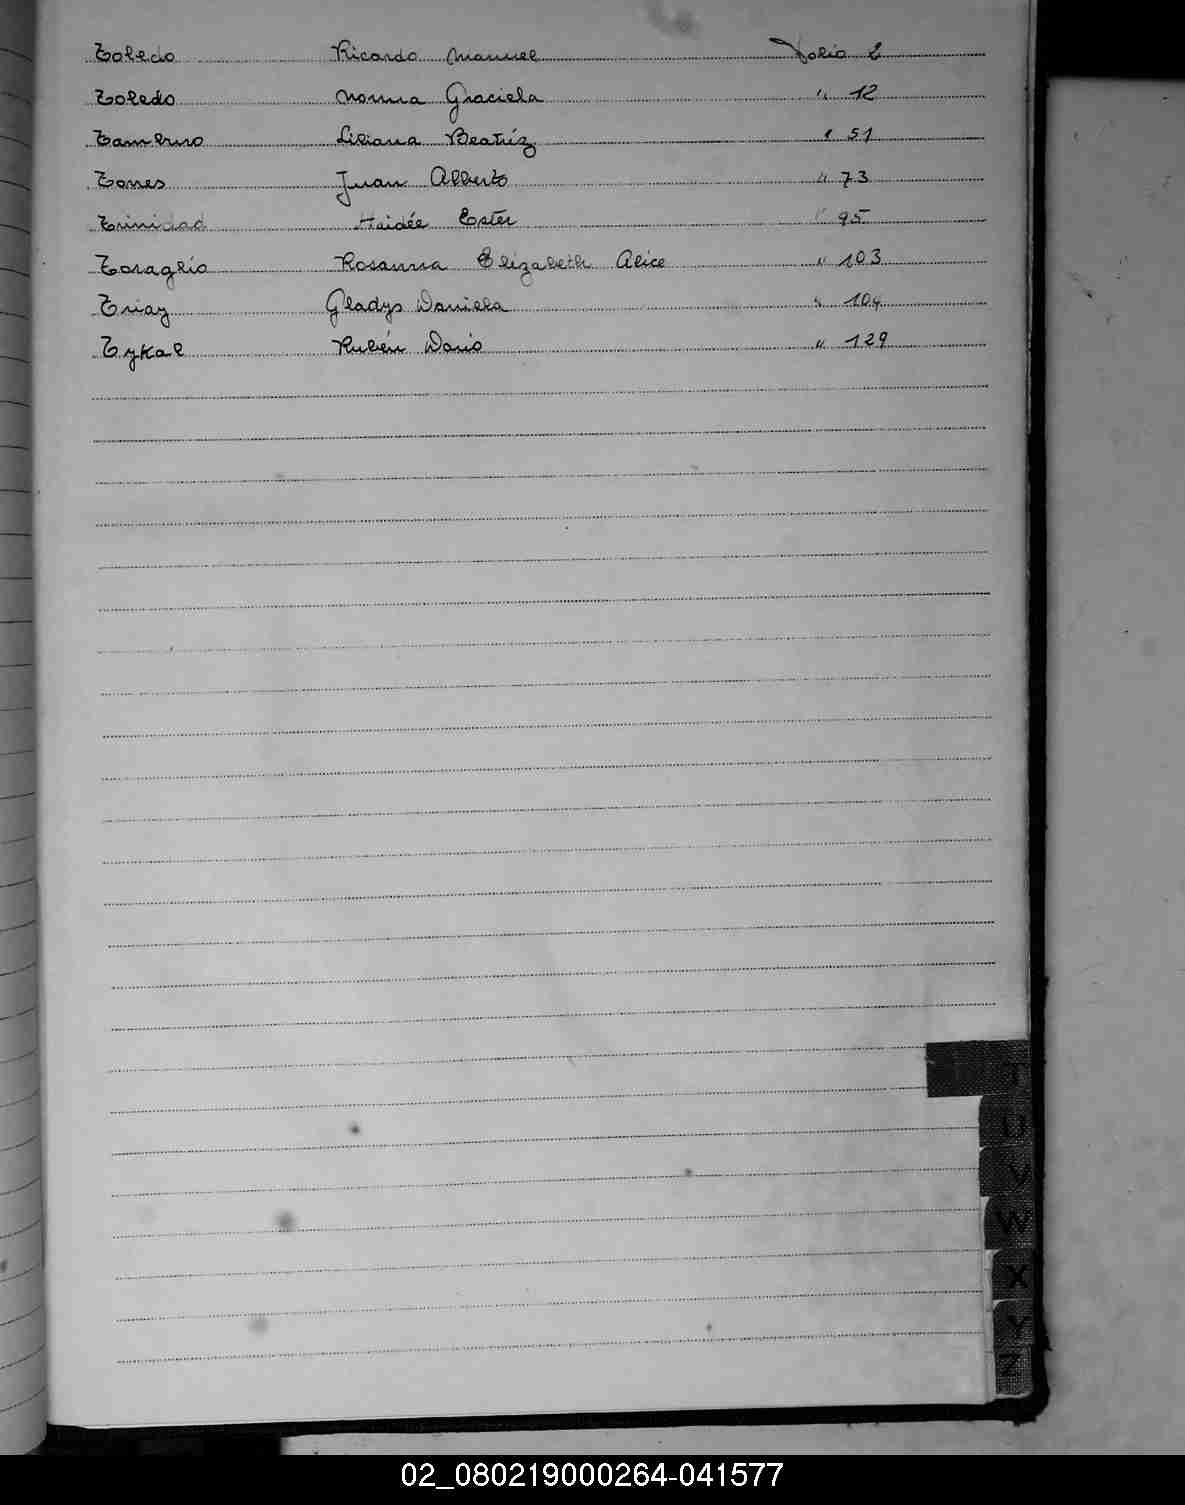 Toledo Ricardo Manuel Folio 2
Toledo Norma Graciela " 12
Liliana Beatriz " 51
Torres Juan Alberto " 73
Trinidad Haidée Ester " 95
Toraglio Rosanna Elizabeth Alice " 103
Triay Gladys Daniela " 104
Tykal Rubén Dario " 129
T
U
V
W
X
Y
Z
02_080219000264-041577